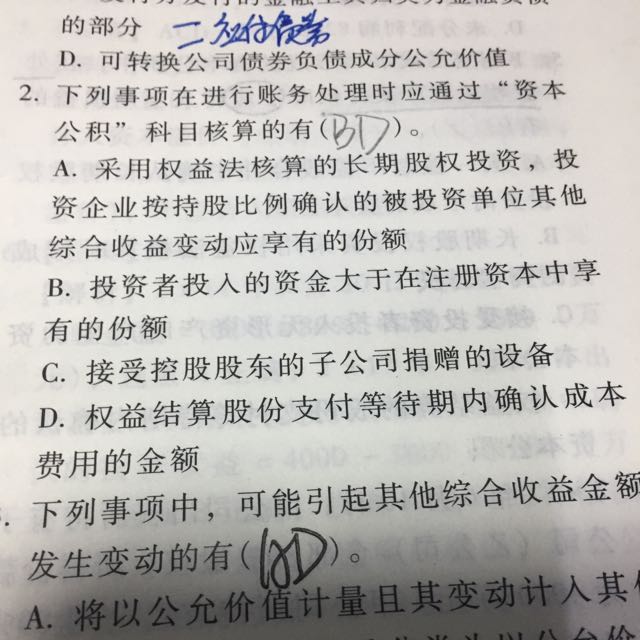 的部分 二、应付债券
D. 可转换公司债券负债成分公允价值
2. 下列事项在进行账务处理时应通过“资本
公积”科目核算的有(BD)。
A. 采用权益法核算的长期股权投资，投
资企业按持股比例确认的被投资单位其他
综合收益变动应享有的份额
B. 投资者投入的资金大于在注册资本中享
有的份额
C. 接受控股股东的子公司捐赠的设备
D. 权益结算股份支付等待期内确认成本
费用的金额
. 下列事项中，可能引起其他综合收益金额
发生变动的有( )。
A. 将以公允价值计量且其变动计入其